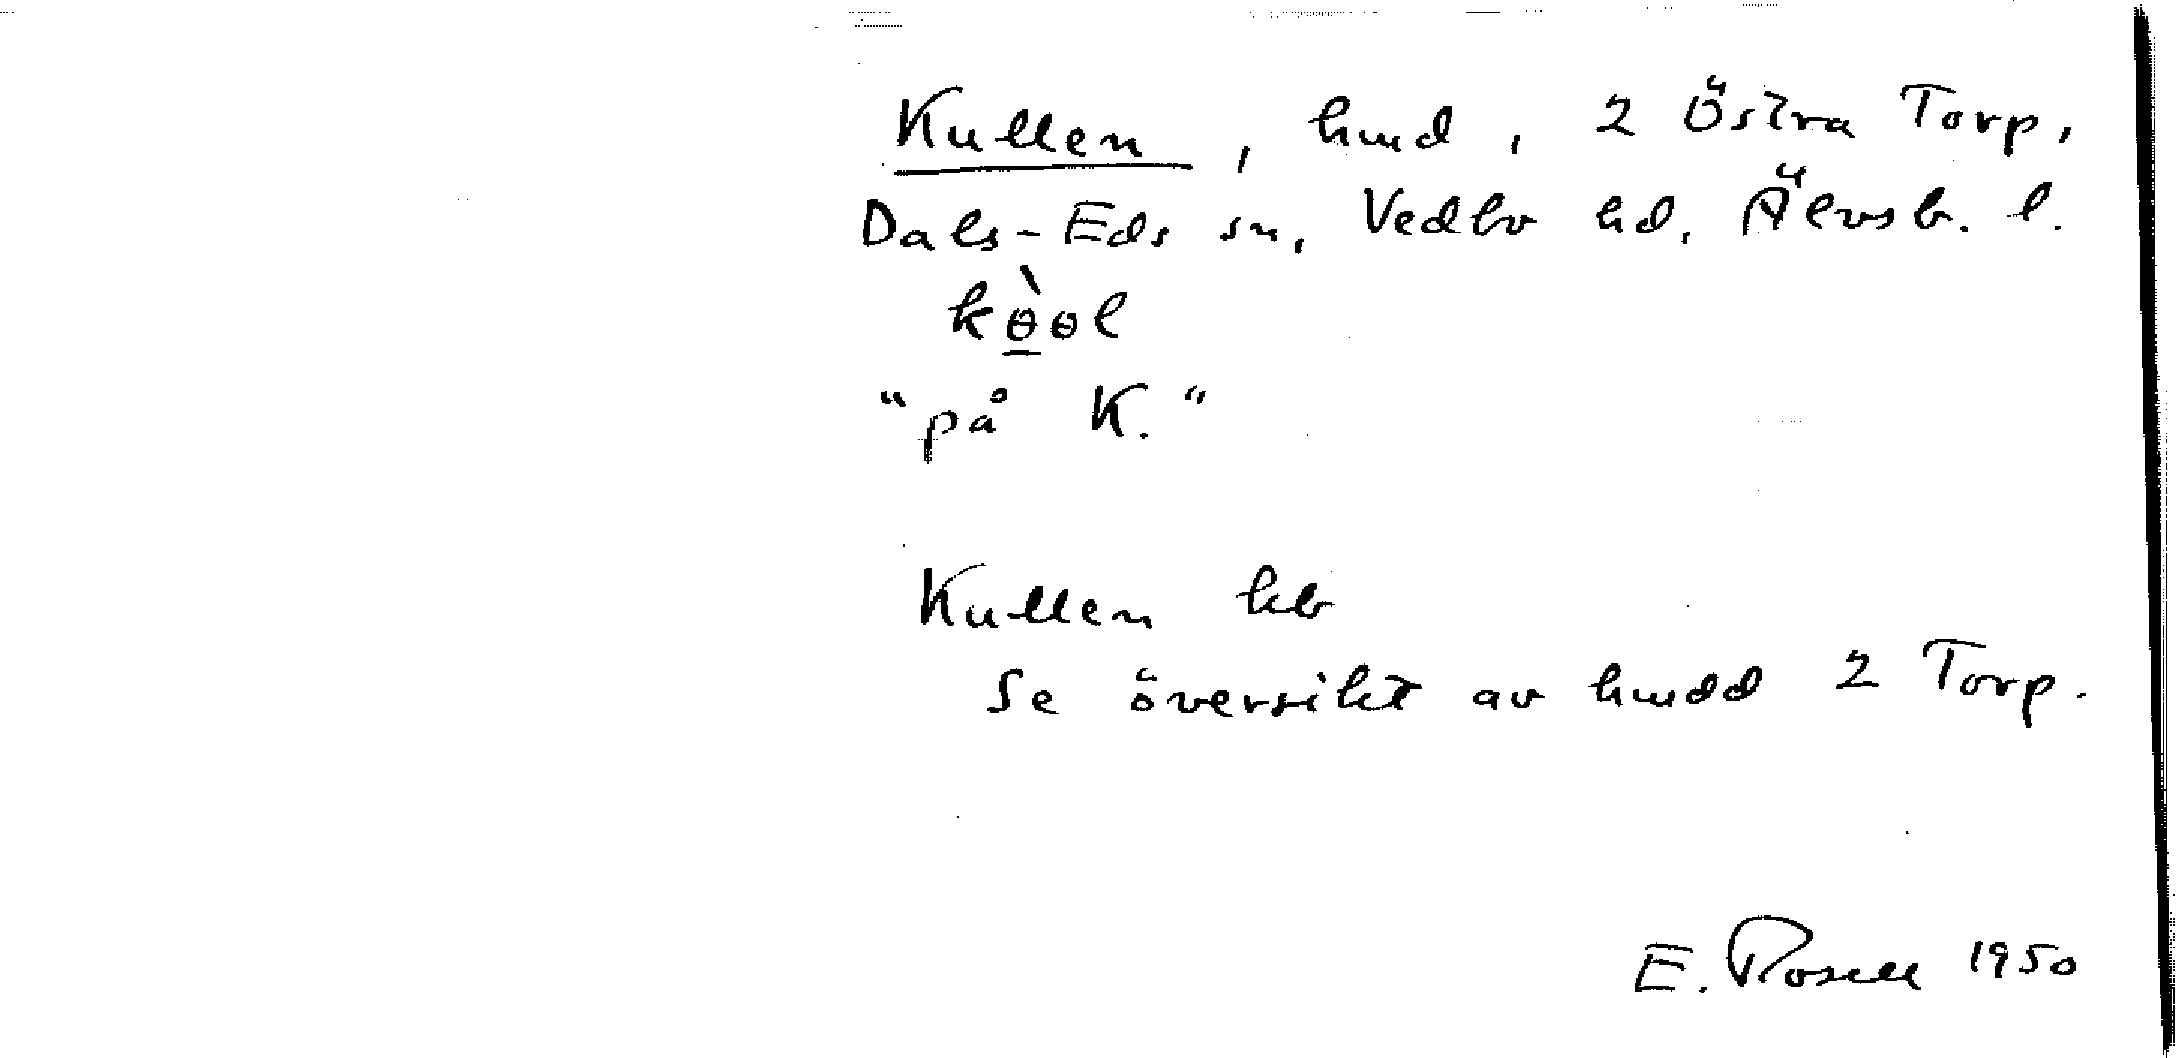 Kullen, hmd, 2 Östra Torp,
Dals-Eds sn, Vedbo hd, Älvsb. l.
kɵ̱̀ɵl
"på K."
Kullen kb
Se översikt av hmdd 2 Torp.
E. Rosell 1950